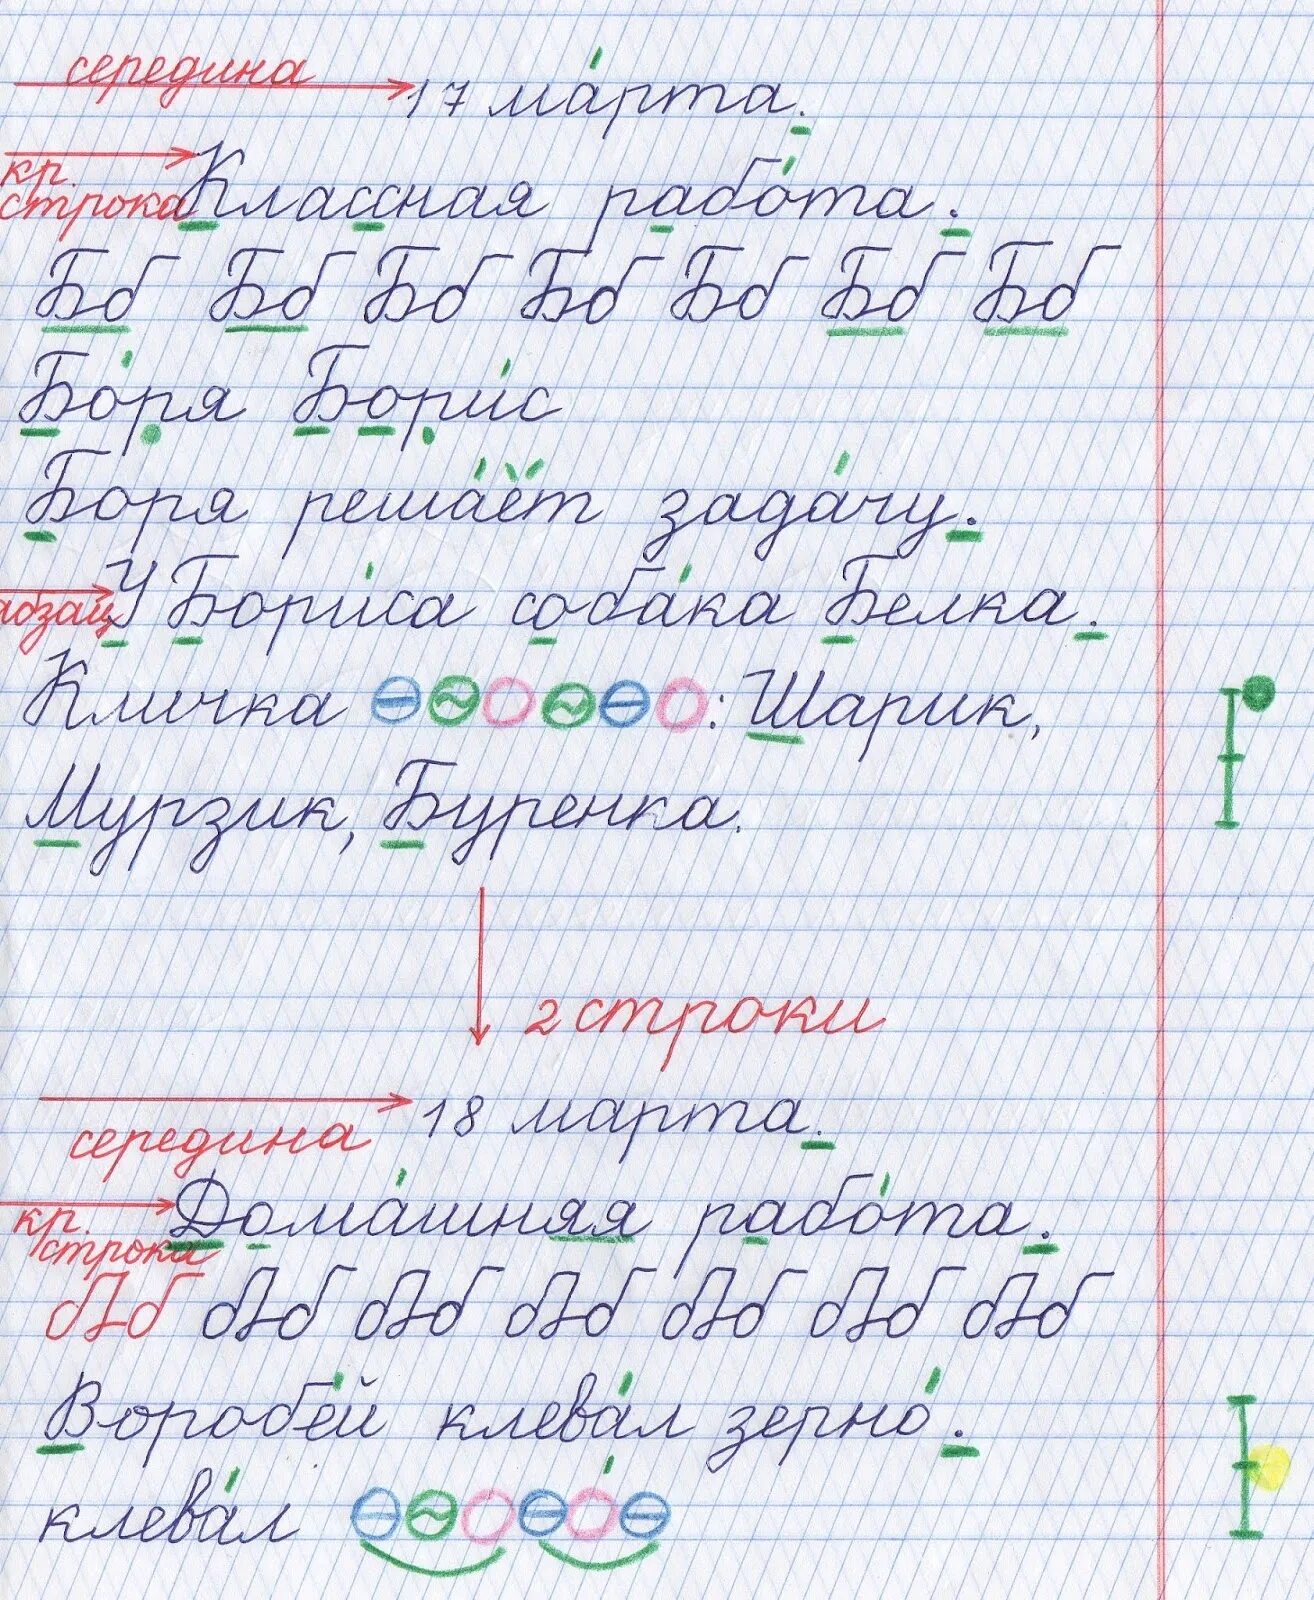 середина 17 марта.
кр. строка Классная работа.
Бб Бб Бб Бб Бб Бб Бб
Бо́ря Бори́с
Боря реша́ет зада́чу.
абзац У Бори́са соба́ка Белка.
Кличка : Шарик,
Мурзик, Буренка.
2 строки
середина 18 марта.
кр. строка Дома́шняя рабо́та.
Воробе́й клева́л зерно́.
клева́л